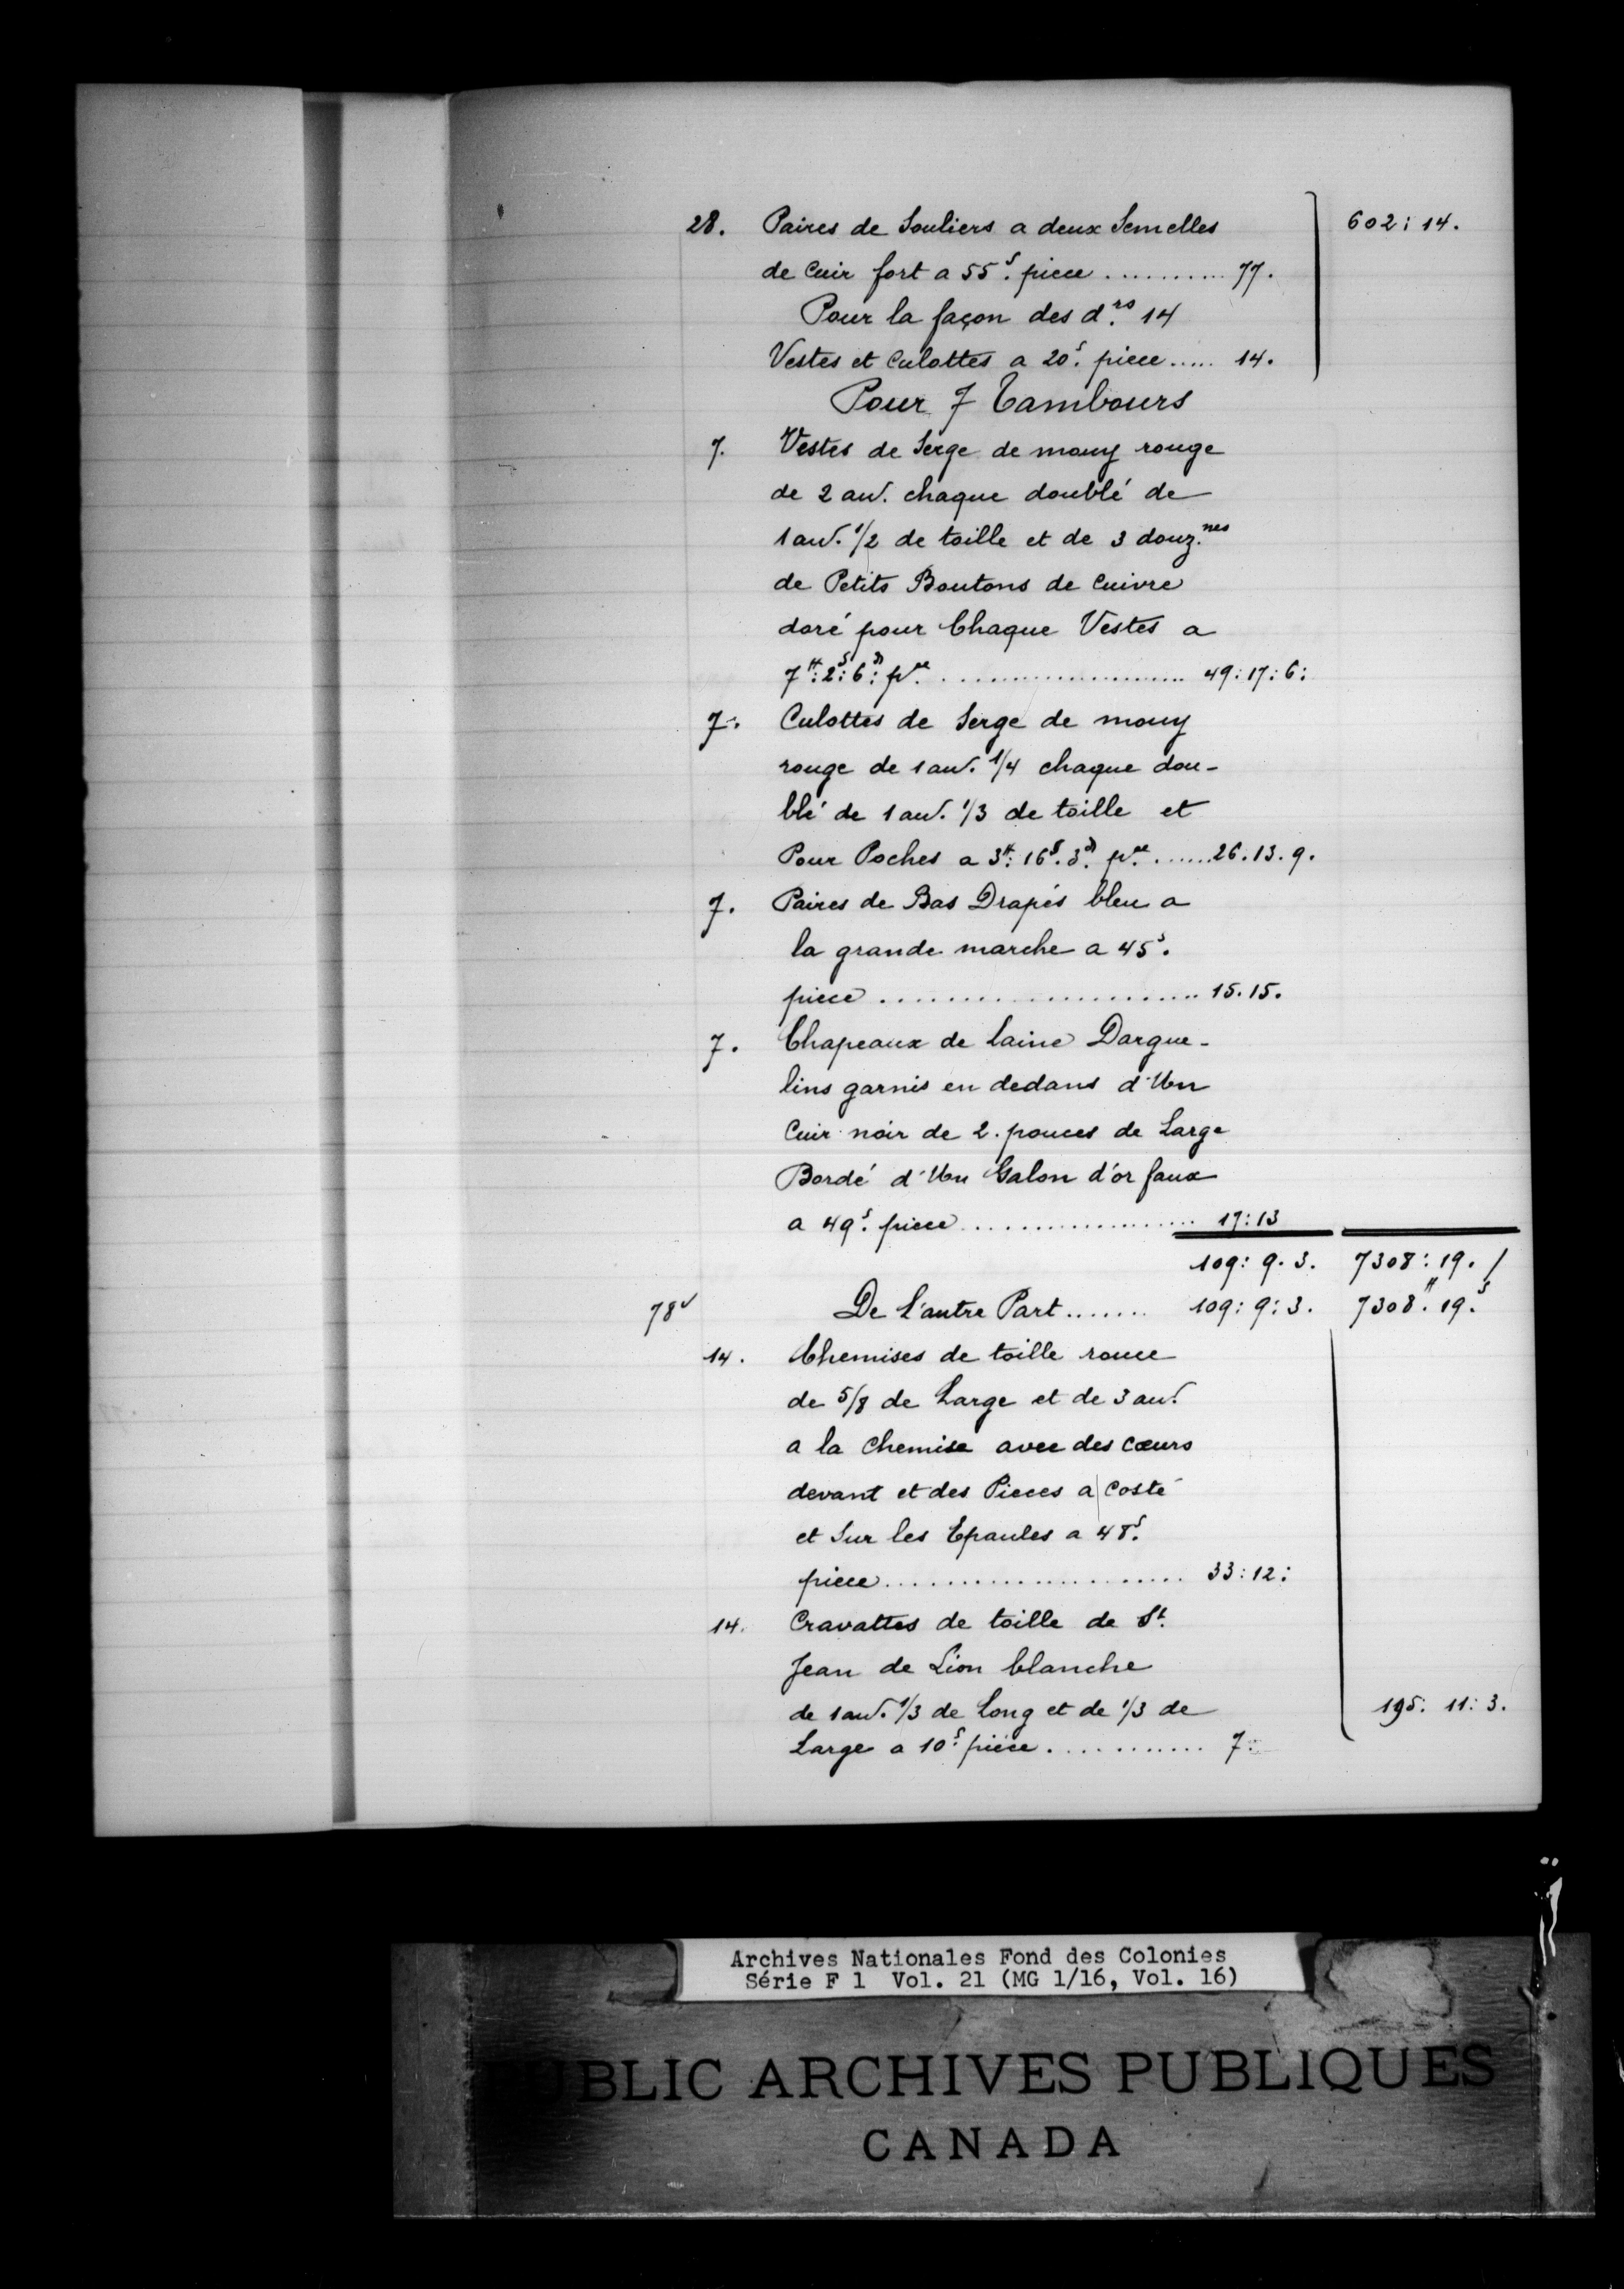 28. Paires de Souliers a deux Semelles 602 : 14.
de Cuir fort a 55.s piece ........... 77.
Pour la façon des d.rs 14
Vestes et Culottes a 20.s piece ..... 14.
Pour 7 Tambours
7. Vestes de Serge de mouy rouge
de 2 au. chaque doublé de
1 au. 1/2 de toille et de 3 douz.nes
de Petits Boutons de Cuivre
doré pour Chaque Vestes a
7# : 2s : 6d : p.ce ........................ 49 : 17 : 6 :
7. Culottes de Serge de mouy
rouge de 1 au. 1/4 chaque dou-
blé de 1 au. 1/3 de toille et
Pour Poches a 3# : 16s. 3d. p.ce ...... 26. 13. 9.
7. Paires de Bas Drapés bleu a
la grande marche a 45s.
piece ........................ 15. 15.
7. Chapeaux de laine Dargue-
lins garnis en dedans d'Un
Cuir noir de 2. pouces de Large
Bordé d'Un Galon d'or faux
a 49.s piece .................. 17 : 13
109 : 9. 3. 7308 : 19. /
78v De l'autre Part ....... 109 : 9 : 3. 7308.# 19.s
14. Chemises de toille rouce
de 5/8 de Large et de 3 au.
a la Chemise avec des cœurs
devant et des Pieces a Costé
et Sur les Epaules a 48.s
piece ...................... 33 : 12 :
14. Cravattes de toille de St.
Jean de Lion blanche
de 1 au. 1/3 de Long et de 1/3 de 195 : 11 : 3.
Large a 10.s piéce ............ 7.
Archives Nationales Fond des Colonies
Série F 1 Vol. 21 (MG 1/16, Vol. 16)
PUBLIC ARCHIVES PUBLIQUES
CANADA